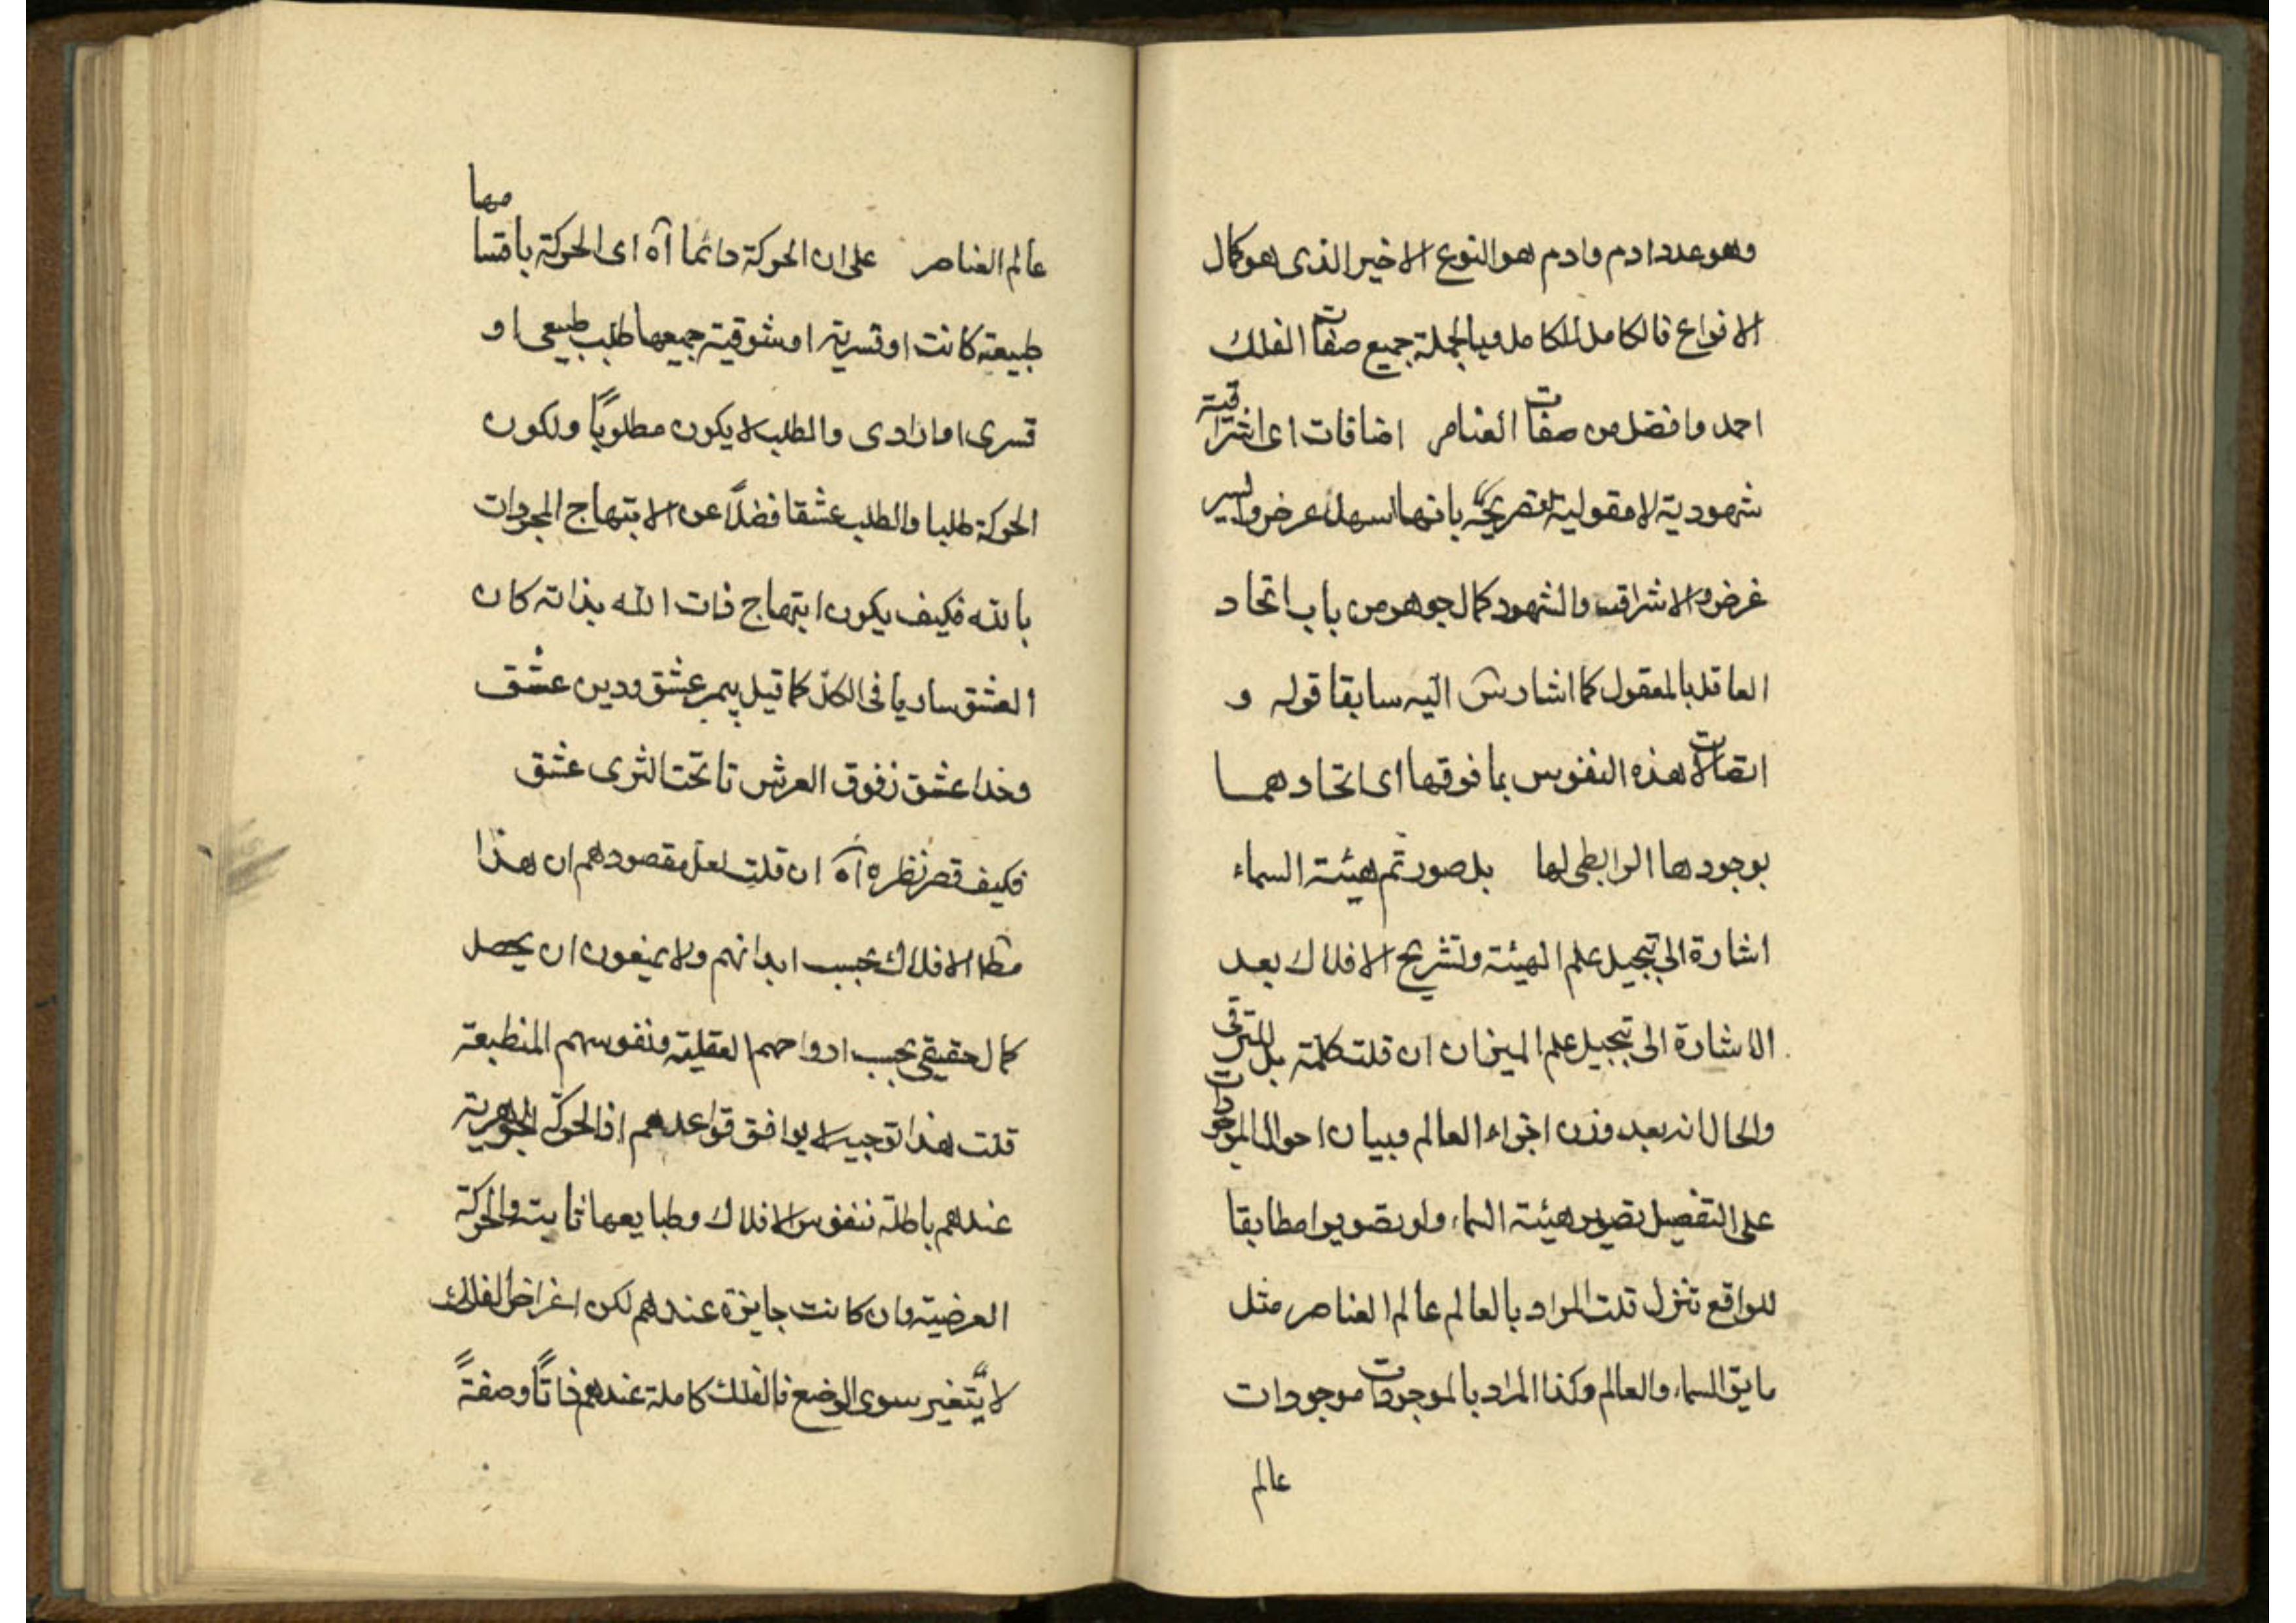 وهو عدد ادم وادم هو النوع الاخير الذى هو كمال
الانواع فالكامل للكامل وبالجملة جميع صفات الفلك
احمد وافضل من صفات العناصر اضافات اى اشراقية
شهودية لا مقولية بانها اسهل عرض وايسر
غرض والاشراق والشهود كمال جوهر من باب اتحاد
العاقل بالمعقول كما اشار اليه سابقا قوله و
اتصالات هذه النفوس بما فوقها اى اتحادهما
بوجودها الرابطى لها بل صورتم هيئة السماء
اشارة الى تبجيل علم الهيئة وتشريح الافلاك بعد
الاشارة الى تبجيل علم الميزان ان قلت كلمة بل للترقى
والحال انه بعد وزن اجزاء العالم وبيان احوال الموجودات
على التفصيل تصوير هيئة السماء ولو تصويرا مطابقا
للواقع تنزل قلت المراد بالعالم عالم العناصر مثل
ما يق السماء والعالم وكذا المراد بالموجودات موجودات
عالم
عالم العناصر على ان الحركة دائما آه اى الحركة باقسامها
طبيعية كانت او قسرية او شوقية جميعها طلب طبيعى او
قسرى او ارادى والطلب لا يكون مطلوبًا ولكون
الحركة طلبا والطلب عشقا فضلًا عن الابتهاج المجردات
بالله فكيف يكون ابتهاج ذات الله بذاته كان
العشق ساريا فى الكل كما قيل پيمبر عشق ودين عشق
وخدا عشق زفوق العرش تا تحت الثرى عشق
فكيف قصر نظره آه ان قلت لعل مقصودهم ان هذا
الافلاك بحسب ابدانهم ولا يمنعون ان يحصل
كمال حقيقى بحسب ارواحهم العقلية ونفوسهم المنطبعة
قلت هذا توجيه لا يوافق قواعدهم اذ الحركة الجوهرية
عندهم باطلة فنفوس الافلاك وطبايعها ثابتة والحركة
العرضية وان كانت جايزة عندهم لكن اغراض الفلك
لا يتغير سوى الوضع فالفلك كاملة عندهم ذاتًا وصفةً